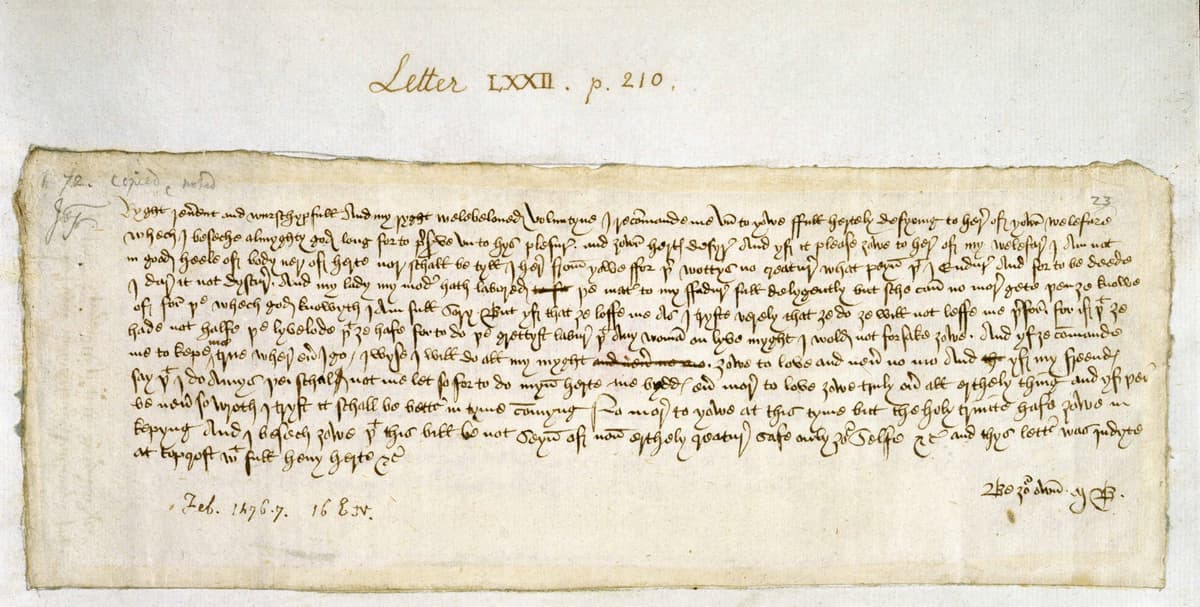 Letter LXXII. p. 210.
72. copied noted
23
Ryght reu'ent and wurschypfull And my ryght welebeloued Voluntyne I recomande me vn to yowe ffull hertely desyring to her' off yowr welefare
whech I beseche almyghty god long for to p'sʼve vn to hys plesur' and ȝowr hertz desyr' And yf it please ȝowe to her' off my welefar' I am not
in good heele off body ner off herte nor schall be tyll I her' ffrom yowe ffor þer wottys no creatur' what peyn þt I endur' And for to be deede
I dar' it not dyscur' And my lady my mod' hath labored þe mat' to my ffadur full delygently but sche can no mor' gete þen ȝe knowe
off for þe whech god knowyth I am full sory But yf that ȝe loffe me as I tryste verely that ȝe do ȝe will not leffe me þ'for for if þt ȝe
hade not halfe þe lyvelode þt ȝe hafe for to do þe grettyst labur' þt any woman on lyve myght I wold not forsake ȝowe And yf ȝe comande
me to kepe me true wher eu' I go I wyse I will do all my myght ȝowe to love and neu' no mo And yf my freends
say þt I do amys þei schall not me let so for to do myn herte me bydds eu' mor' to love ȝowe truly ou' all erthely thing and yf þei
be neu' so wroth I tryst it schall be bett' in tyme comyng No mor' to yowe at this tyme but the holy trinite hafe ȝowe in
kepyng And I besech ȝowe þt this bill be not seyn off non erthely creatur' safe only ȝor selfe &c and thys lett' was indyte
at Topcroft wt full heuy herte &c
Be ȝor own M B.
Feb. 1476.7. 16 E. IV.